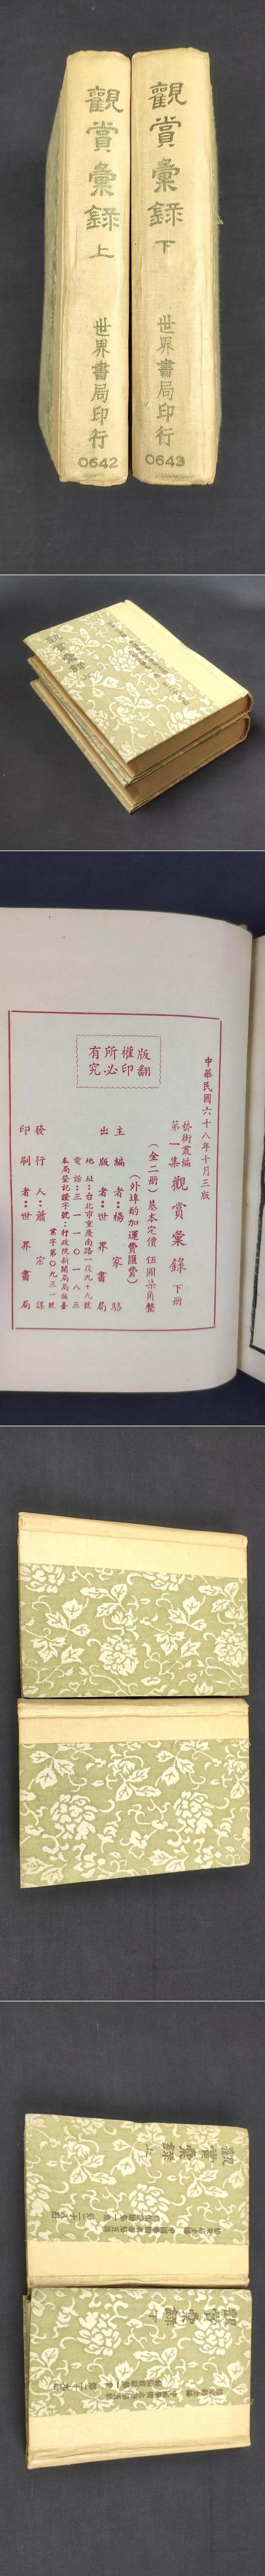 觀賞彙錄 上
世界書局印行
0642
觀賞彙錄 下
世界書局印行
0643
版權所有
翻印必究
中華民國六十八年十月三版
藝術叢編
第一集 觀賞彙錄 下册
(全二册)基本定價 伍圓柒角整
(外埠酌加運費匯費)
主編者:楊家駱
出版者:世界書局
地址:台北市重慶南路一段九十九號
電話:三一一〇一八三
本局登記證字號:行政院新聞局局版臺
業字第〇九三一號
發行人:蕭宗謀
印刷者:世界書局
觀賞彙錄 上
觀賞彙錄 下